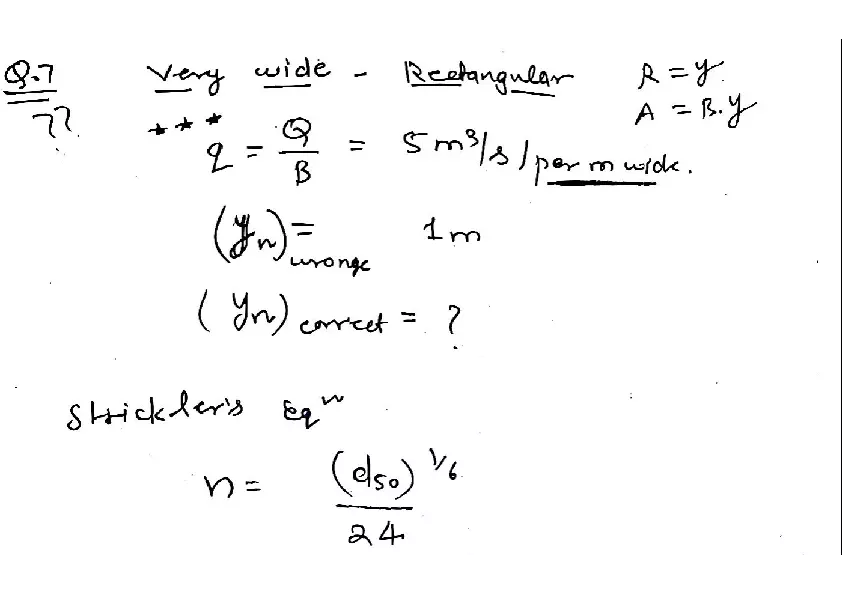 Q.7 Very wide - Rectangular R = y.
?? A = B.y
*** q = Q/B = 5 m³/s / per m wide.
(yn)wronge = 1m
(yn) correct = ?
Strickler's Eqⁿ
n = (d50)^1/6 / 24